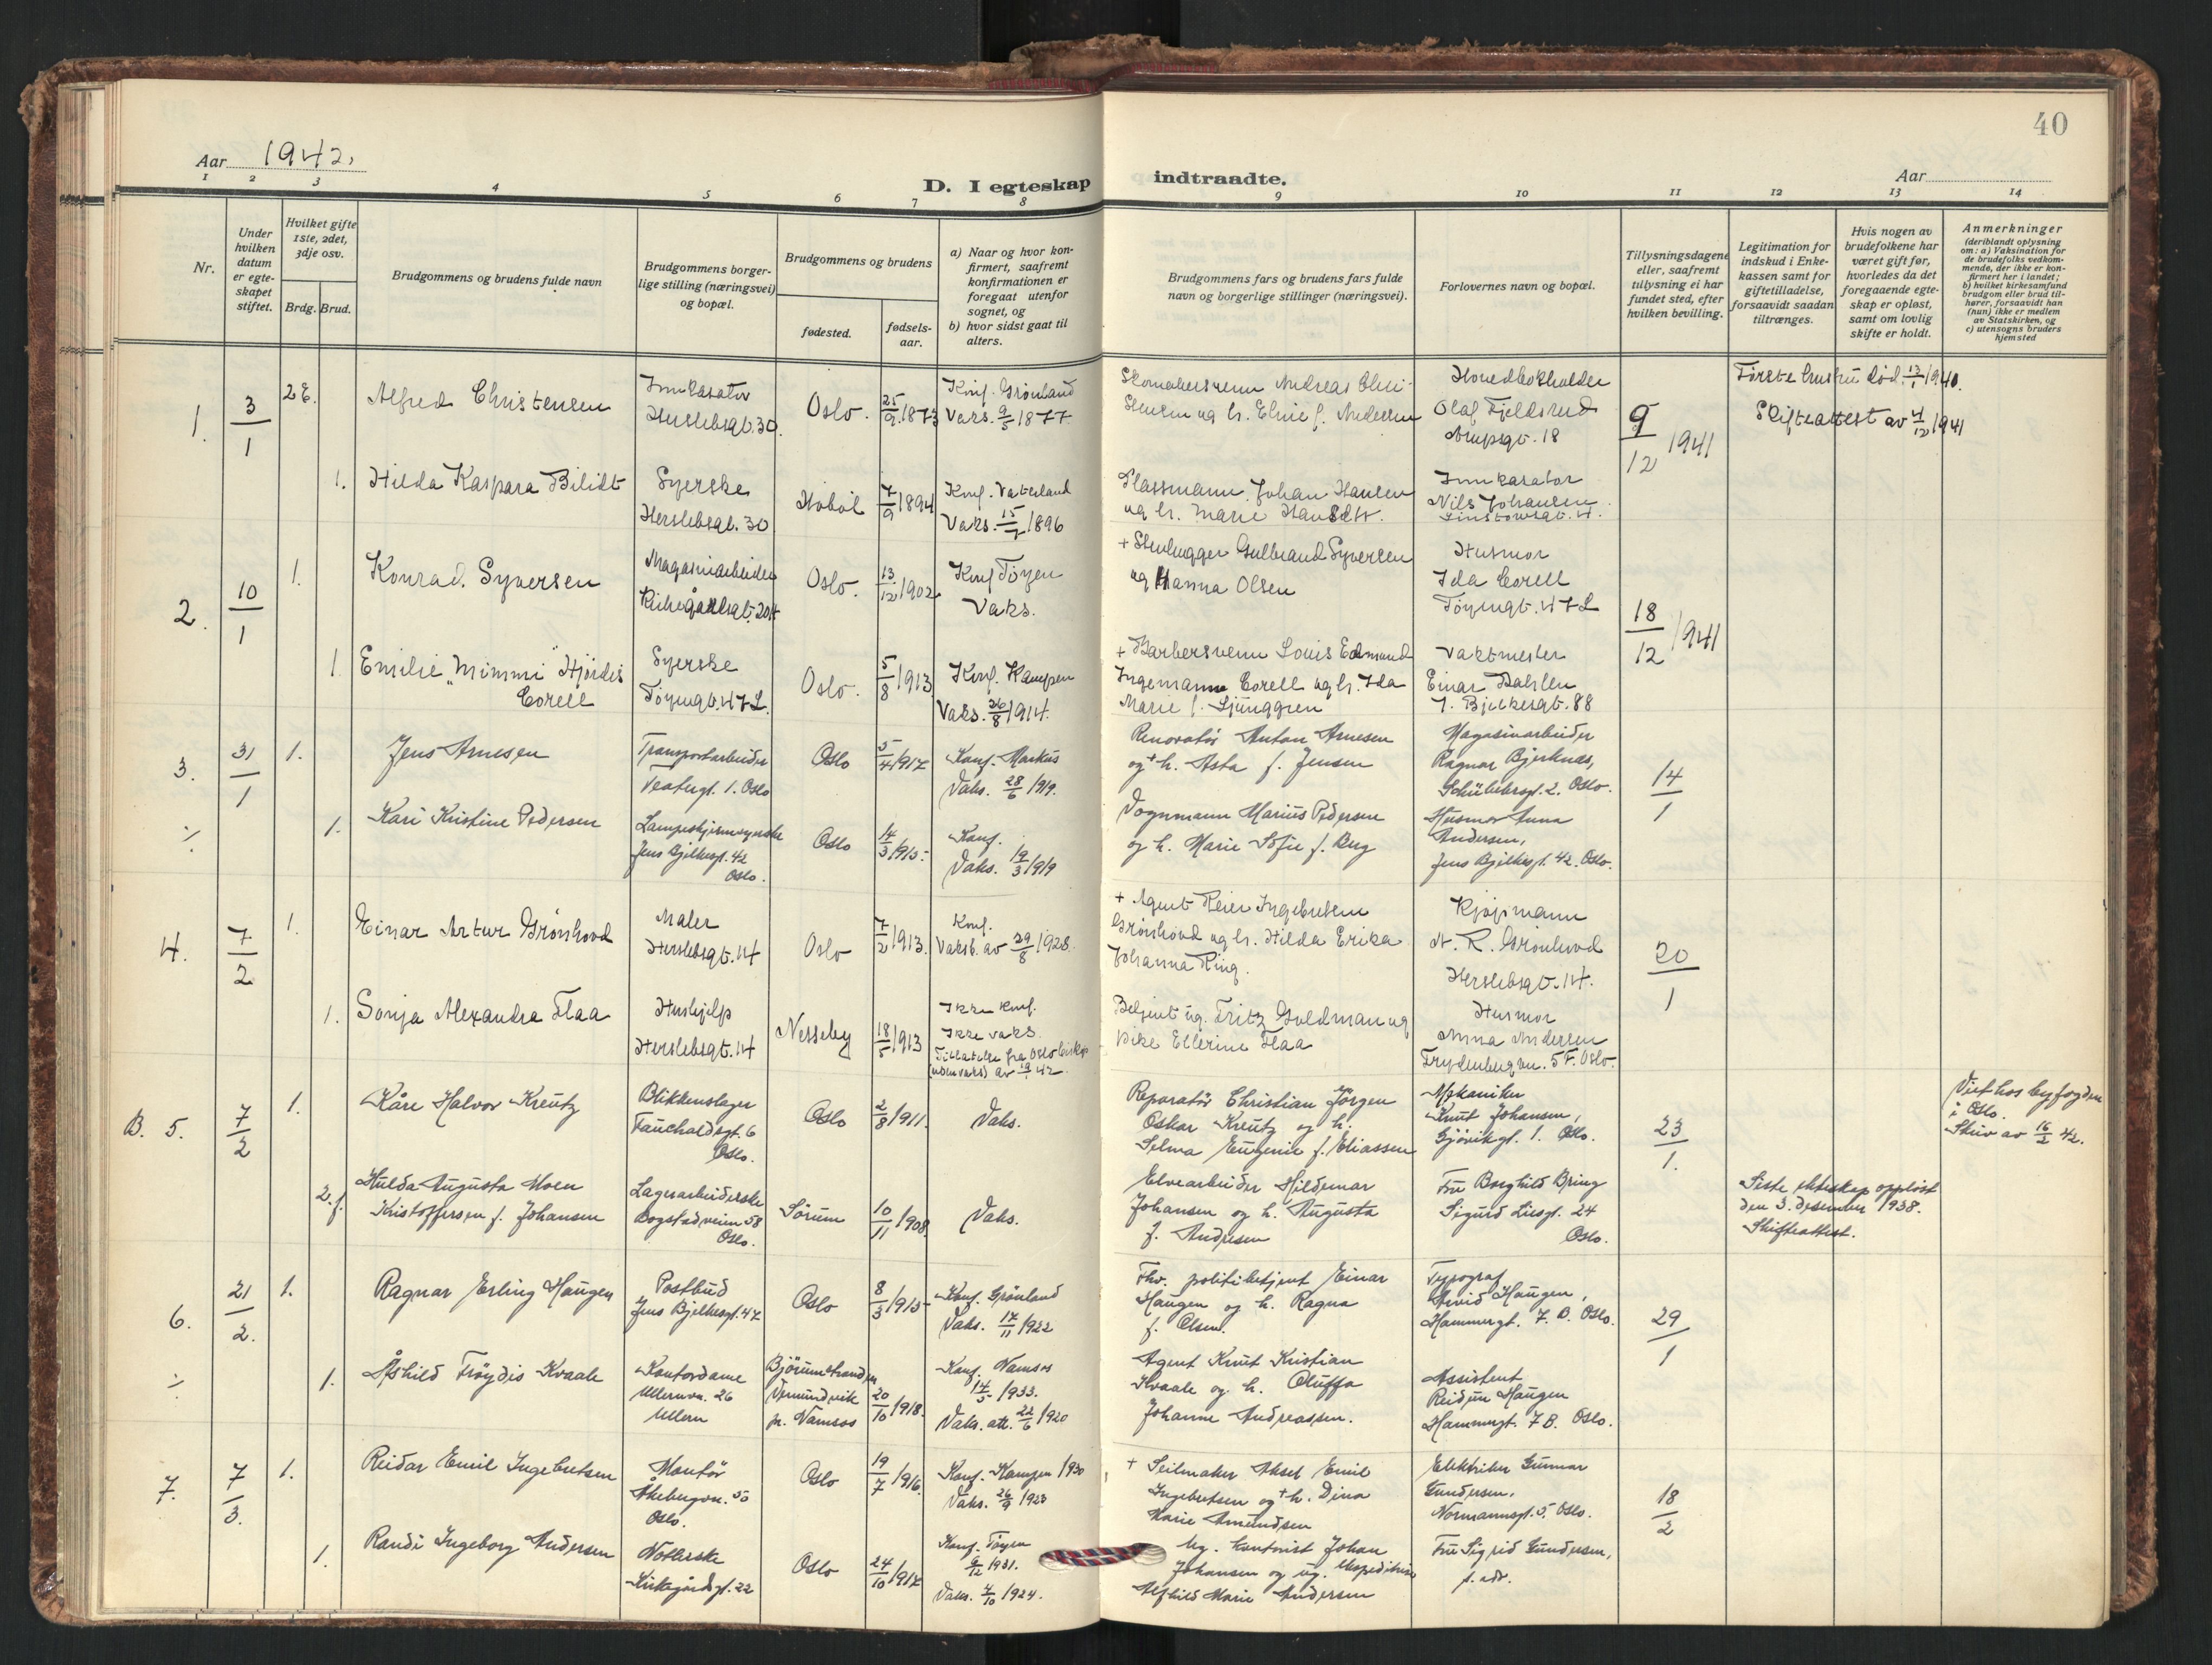 40
Aar 1942.
D. I egteskap indtraadte.
Aar
1 2 3 4 5 6 7 8 9 10 11 12 13 14
Nr.
Under hvilken datum er egteskapet stiftet.
Hvilket gifte 1ste, 2det, 3dje osv.
Brdg. Brud.
Brudgommens og brudens fulde navn
Brudgommens borgerlige stilling (næringsvei) og bopæl.
Brudgommens og brudens
fødested.
fødselsaar.
a) Naar og hvor konfirmert, saafremt konfirmationen er foregaat utenfor sognet, og
b) hvor sidst gaat til alters.
Brudgommens fars og brudens fars fulde navn og borgerlige stillinger (næringsvei).
Forlovernes navn og bopæl.
Tillysningsdagene eller, saafremt tillysning ei har fundet sted, efter hvilken bevilling.
Legitimation for indskud i Enkekassen samt for giftetilladelse, forsaavidt saadan tiltrænges.
Hvis nogen av brudefolkene har været gift før, hvorledes da det foregaaende egteskap er opløst, samt om lovlig skifte er holdt.
Anmerkninger
(deriblandt oplysning om: a) Vaksination for de brudefolks vedkommende, der ikke er konfirmert her i landet; b) hvilket kirkesamfund brudgom eller brud tilhører, forsaavidt han (hun) ikke er medlem av Statskirken, og c) utensogns bruders hjemsted
1. 3/1 2g. Alfred Christensen
Innkasator
Herslebsgt. 30.
Oslo. 25/9 1873
Konf. Grønland
Vaks. 9/5 1877.
Skomakersvenn Andreas Chri-
stensen og h. Eline f. Andersen
Hovedbokholder
Olaf Fjeldsrud
Arupsgt. 18
9/12 1941
Første hustru død 13/1 1940.
Skifteattest av 4/12 1941
1. Hilda Kaspara Bilidt
Syerske
Herslebsgt. 30
Hobøl 7/9 1894
Konf. Vaterland
Vaks. 15/7 1896
Plassmann Johan Hansen
og h. Marie
Innkasator
Nils Johansen
Linstowsgt. 4.
2. 10/1 1. Konrad Syversen
Magasinarbeider
Kirkegårdsgt. 20
Oslo. 13/12 1902
Konf Tøyen
Vaks.
+ Stenhugger Gulbrand Syversen
og Hanna Olsen
Husmor
Ida Corell
Tøyengt. 47 L
18/12 1941
1. Emilie "Mimmi" Hjördis
Corell
Syerske
Tøyengt. 47 L.
Oslo. 5/8 1913
Konf. Kampen
Vaks. 26/8 1914.
+ Barbersvenn Louis Edmund
Ingemann Corell og h. Ida
Marie f. Ljunggren
Vaktmester
Einar Dahlen
J. Bjelkesgt. 88
3. 31/1 1. Jens Arnesen
Transportarbeider
Teatergt. 1. Oslo
Oslo 5/4 1917
Konf. Markus
Vaks. 28/6 1919.
Renovatør Anton Arnesen
og + h. Asta f. Jensen
Magasinarbeider
Ragnar Bjerknes,
Schüblersgt. 2. Oslo.
14/1
1. Kari Kristine Pedersen
Lampeskjermsyerske
Jens Bjelkesgt. 42
Oslo.
Oslo 14/3 1915.
Konf.
Vaks. 19/3 1919
Vognmann Marius Pedersen
og h. Marie Sofie f. Berg
Husmor Anna
Andersen,
Jens Bjelkesgt. 42. Oslo.
4. 7/2 1. Einar Artur Grønhovd
Maler
Herslebsgt. 14
Oslo 7/2 1913.
Konf.
Vaksb. av 29/8 1928.
+ Agent Reier Ingebretsen
Grønhovd og h. Hilda Erika
Johanna Ring.
Kjøpmann
R. Grønhovd
Herslebsgt. 14.
20/1
1. Sonja Alexandra Flaa
Hushjelp
Herslebsgt. 14
Nesseby 18/5 1913
Ikke konf.
Ikke vaks.
Tillatelse fra Oslo biskop
(uten vaks) av 19/1 42.
Betjent ug. Fritz Goldman og
pike Ellerine Flaa
Husmor
Anna Andersen
Frydenbergvn. 5 F. Oslo.
B. 5. 7/2 1. Kåre Halvor Kreutz
Blikkenslager
Fauchaldsgt. 6
Oslo.
Oslo 2/8 1911.
Vaks.
Reparatør Christian Jörgen
Oskar Kreutz og h.
Selma Eugenie f. Eliassen
Mekaniker
Knut Johansen,
Gjøvikgt. 1. Oslo.
23/1.
Viet hos byfogden
i Oslo.
Skriv av 16/2 42.
2. f. Hulda Augusta Moen
Kristoffersen f. Johansen
Lagerarbeiderske
Bogstadveien 58
Oslo.
Sørum 10/11 1908
Vaks.
Elvearbeider Hildemar
Johansen og h. Augusta
f. Andresen
Fru Borghild Bring
Sigurd Liesgt. 24
Oslo.
Siste ekteskap oppløst
den 3. desember 1938.
Skifteattest.
6. 21/2. 1. Ragnar Erling Haugen
Postbud
Jens Bjelkesgt. 47
Oslo 8/3 1915
Konf. Grønland
Vaks. 17/11 1922
Fhv. politibetjent Einar
Haugen og h. Ragna
f. Olsen.
Typograf
Arvid Haugen,
Hammergt. 7. B. Oslo.
29/1
1. Åshild Frøydis Kvaale
Kontordame
Ullernvn. 26
Ullern
Bjørumstranden
Vemundvik
pr. Namsos
20/10 1918.
Konf. Namsos
14/5 1933.
Vaks. att. 22/6 1920
Agent Knut Kristian
Kvaale og h. Oluffa
Johanne Andreassen.
Assistent
Reidun Haugen
Hammergt. 7 B. Oslo.
7. 7/3. 1. Reidar Emil Ingebretsen
Montør
Åkebergvn. 50
Oslo.
Oslo 19/7 1916.
Konf. Kampen 1930
Vaks. 26/9 1923
+ Seilmaker Aksel Emil
Ingebretsen og + h. Dina
Marie Amundsen
Elektriker Gunnar
Gundersen,
Normannsgt. 5. Oslo.
18/2
1. Randi Ingeborg Andersen
Noterske
Kirkegårdsgt. 22
Oslo 24/10 1917
Konf. Tøyen
6/12 1931.
Vaks. 4/10 1924.
Ug. kontorist Johan
Johansen og ug. ekspeditrise
Alfhild Marie Andersen
Fru Sigrid Gundersen,
s. adr.